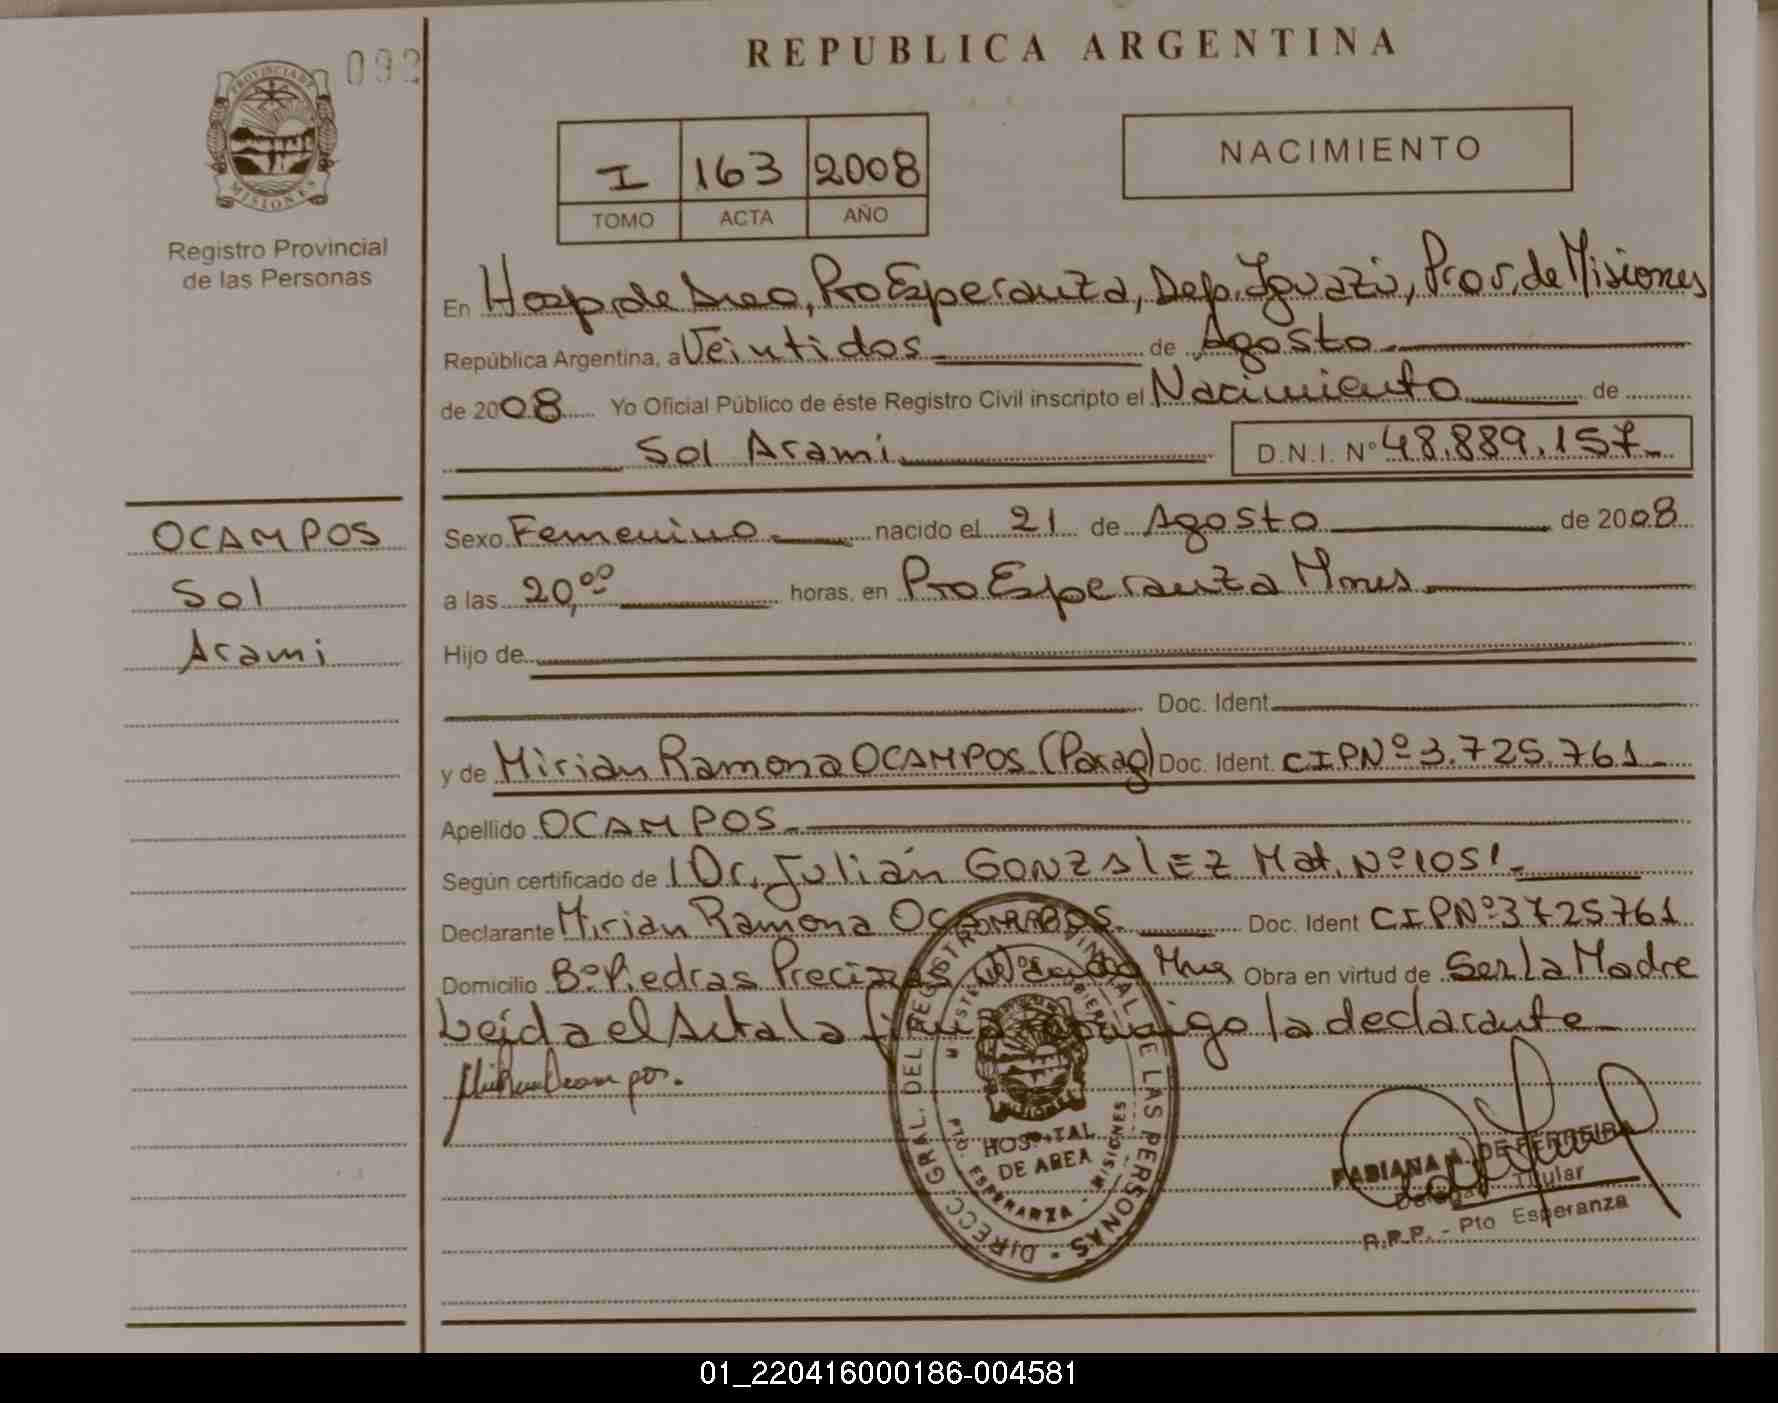 092
REPUBLICA ARGENTINA
PROVINCIA DE
MISIONES
Registro Provincial
de las Personas
I 163 2008
TOMO ACTA AÑO
NACIMIENTO
En Hosp. de Area, Pto Esperanza, Dep. Iguazú, Prov. de Misiones
República Argentina, a Veintidos de Agosto
de 2008 Yo Oficial Público de éste Registro Civil inscripto el Nacimiento de
Sol Arami D.N.I. Nº 48.889.157
OCAMPOS
Sol
Arami
Sexo Femenino nacido el 21 de Agosto de 2008
a las 20,00 horas, en Pto Esperanza Mnes
Hijo de
Doc. Ident.
y de Mirian Ramona OCAMPOS (Parag) Doc. Ident. CIPNº 3.725.761
Apellido OCAMPOS
Según certificado de Dr. Julián GONZALEZ Mat. Nº 1051
Declarante Mirian Ramona OCAMPOS Doc. Ident CIPNº 3725761
Domicilio Bº Piedras Preciosas Obra en virtud de Ser la Madre
Leida el Acta la firma conmigo la declarante
DIRECC GRAL. DEL REGISTRO PROVINCIAL DE LAS PERSONAS
HOSPITAL
DE AREA
PTO. ESPERANZA - MISIONES
FABIANA A. DE FERREIRA
Delegada Titular
R.P.P. - Pto Esperanza
01_220416000186-004581